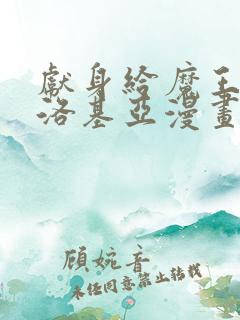 獻身給魔王
洛基亞漫畫
顧婉音
未經同意禁止轉載